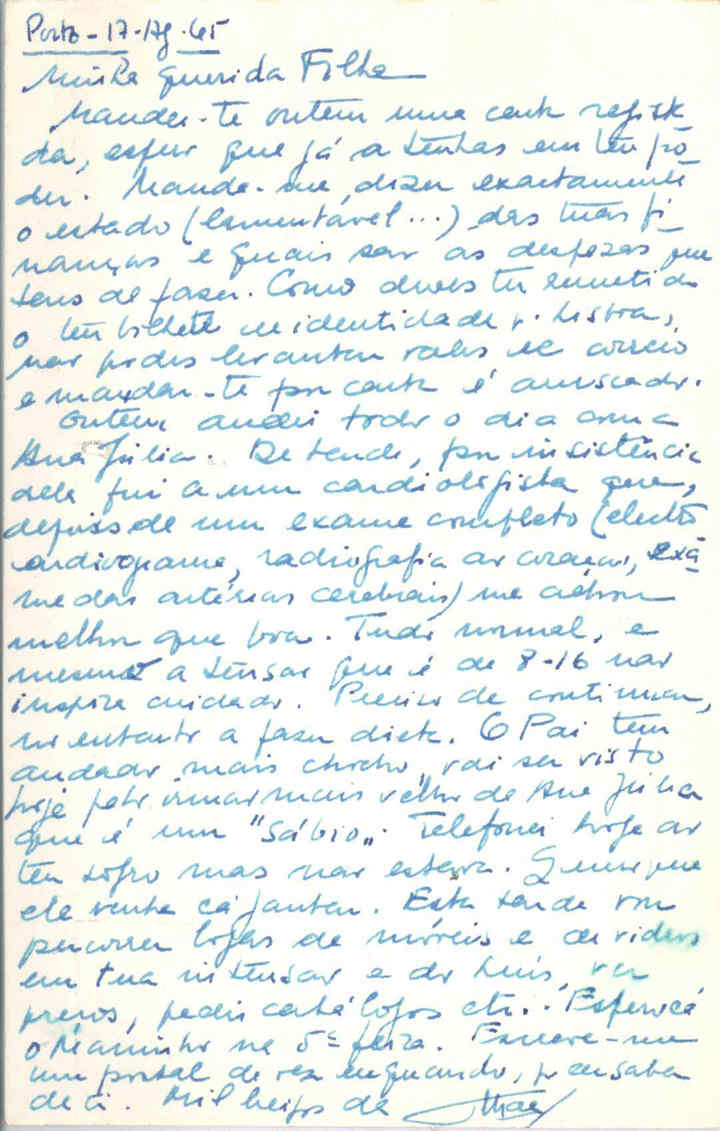 Porto - 17-Ag.65
Minha querida Filha
Mandei-te ontem uma carta regista
da, espero que já a tenhas em teu pó
der. Manda-me dizer exactamente
o estado (lamentável...) das tuas fi
nanças e quais são as despezas que
tens de fazer. Como deves ter remetido
o teu bilhete de identidade p. Lisboa,
não podes levantar vales de correio
e mandar-te por carta é arriscado.
Ontem andei todo o dia com a
Ana Júlia. De tarde, por insistência
dela fui a um cardiologista que,
depois de um exame completo (electro
cardiograma, radiografia ao coração, exá
me das artérias cerebrais) me achou
melhor que boa. Tudo normal, e
mesmo a tensão que é de 8-16 não
inspira cuidado. Preciso de continuar,
no entanto a fazer dieta. O Pai tem
andado mais chocho, vai ser visto
hoje pelo irmão mais velho de Ana Júlia
que é um "Sábio". Telefonei hoje ao
teu sogro mas não estava. Quero que
ele venha cá jantar. Esta tarde vou
percorrer lojas de móveis e de vidros
em tua intensão e do Luís, ver
preços, pedir catálogos etc. Espero cá
o Maninho na 5ª feira. Escreve-me
um postal de vez enquando, p. eu saber
de ti. Mil beijos da Mãe